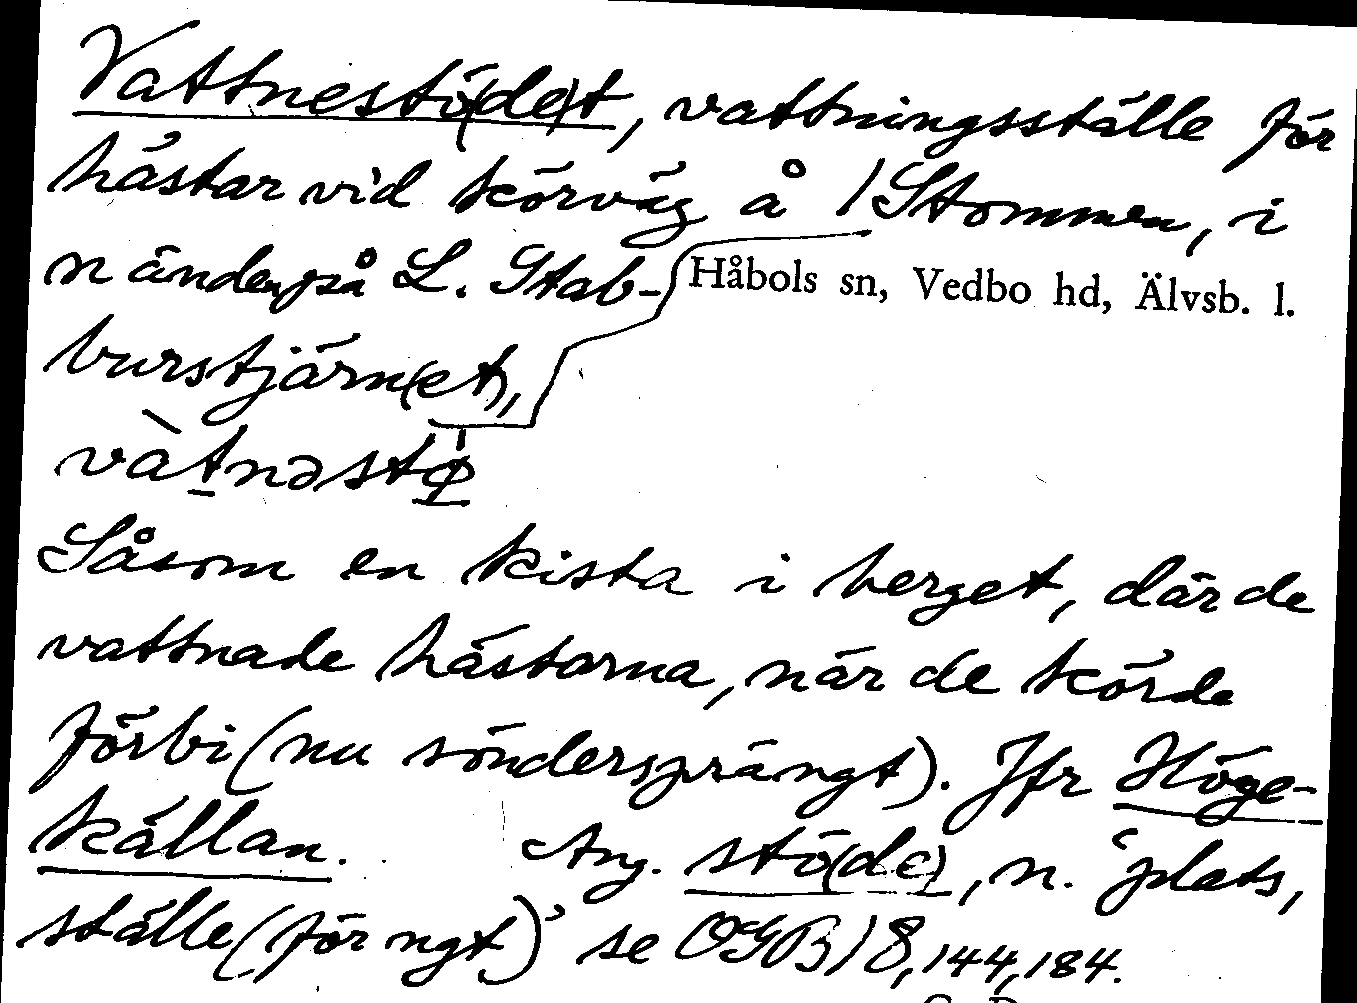 Vattnestö(de)t, vattningsställe för
hästar vid körväg å /Stommen, i
n änden på L. Stab-
Håbols sn, Vedbo hd, Älvsb. l.
burstjärn(et),
vàtnəstø
Såsom en kista i berget, där de
vattnade hästarna, när de körde
förbi (nu söndersprängt). Jfr Höge-
källan. Ang. stö(de), n. 'plats,
ställe (för ngt)' se OGB 18, 144, 184.